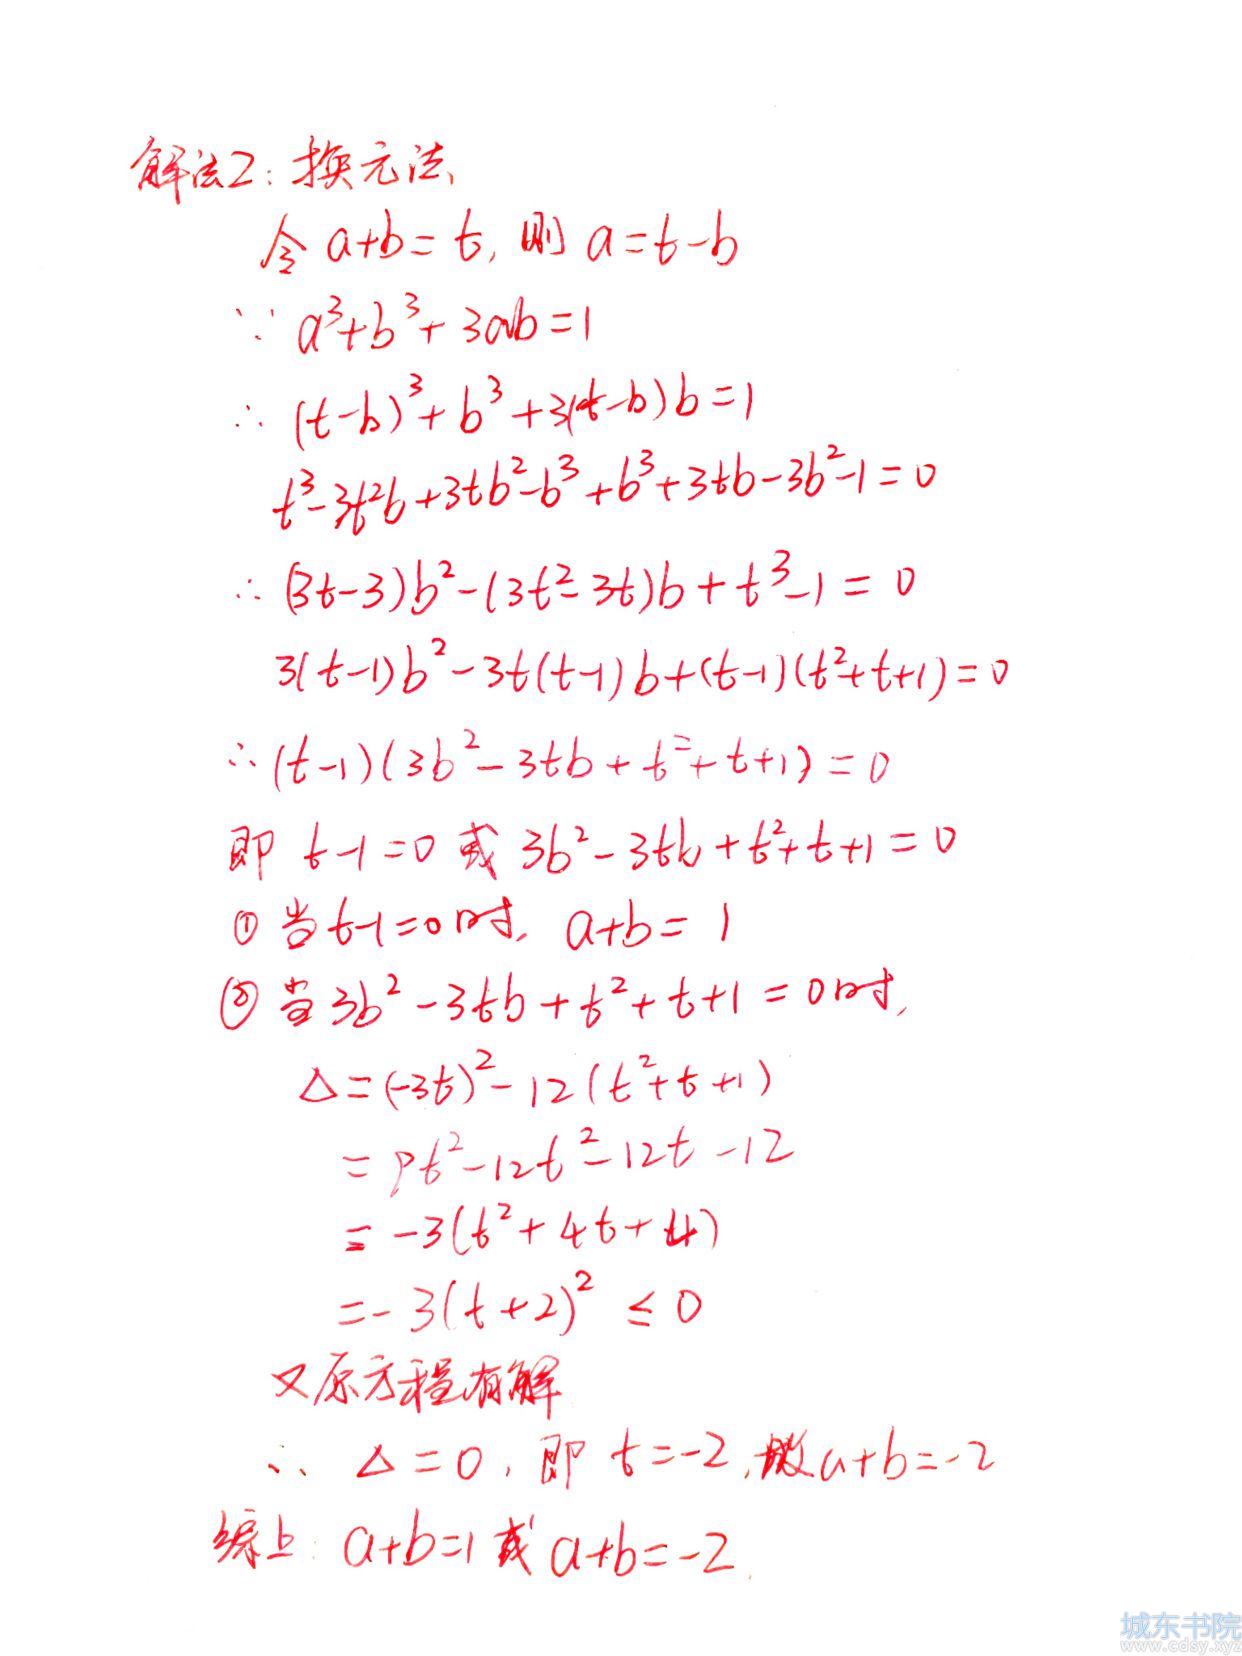 解法2: 换元法
令 a+b=t, 则 a=t-b
∵ a³+b³+3ab=1
∴ (t-b)³+b³+3(t-b)b=1
t³-3t²b+3tb²-b³+b³+3tb-3b²-1=0
∴ (3t-3)b²-(3t²-3t)b+t³-1=0
3(t-1)b²-3t(t-1)b+(t-1)(t²+t+1)=0
∴ (t-1)(3b²-3tb+t²+t+1)=0
即 t-1=0 或 3b²-3tb+t²+t+1=0
① 当 t-1=0时, a+b=1
② 当 3b²-3tb+t²+t+1=0时,
△=(-3t)²-12(t²+t+1)
=9t²-12t²-12t-12
=-3(t²+4t+4)
=-3(t+2)²≤0
又原方程有解
∴ △=0, 即 t=-2, 故a+b=-2
综上: a+b=1 或 a+b=-2.
城东书院
www.cdsy.xyz